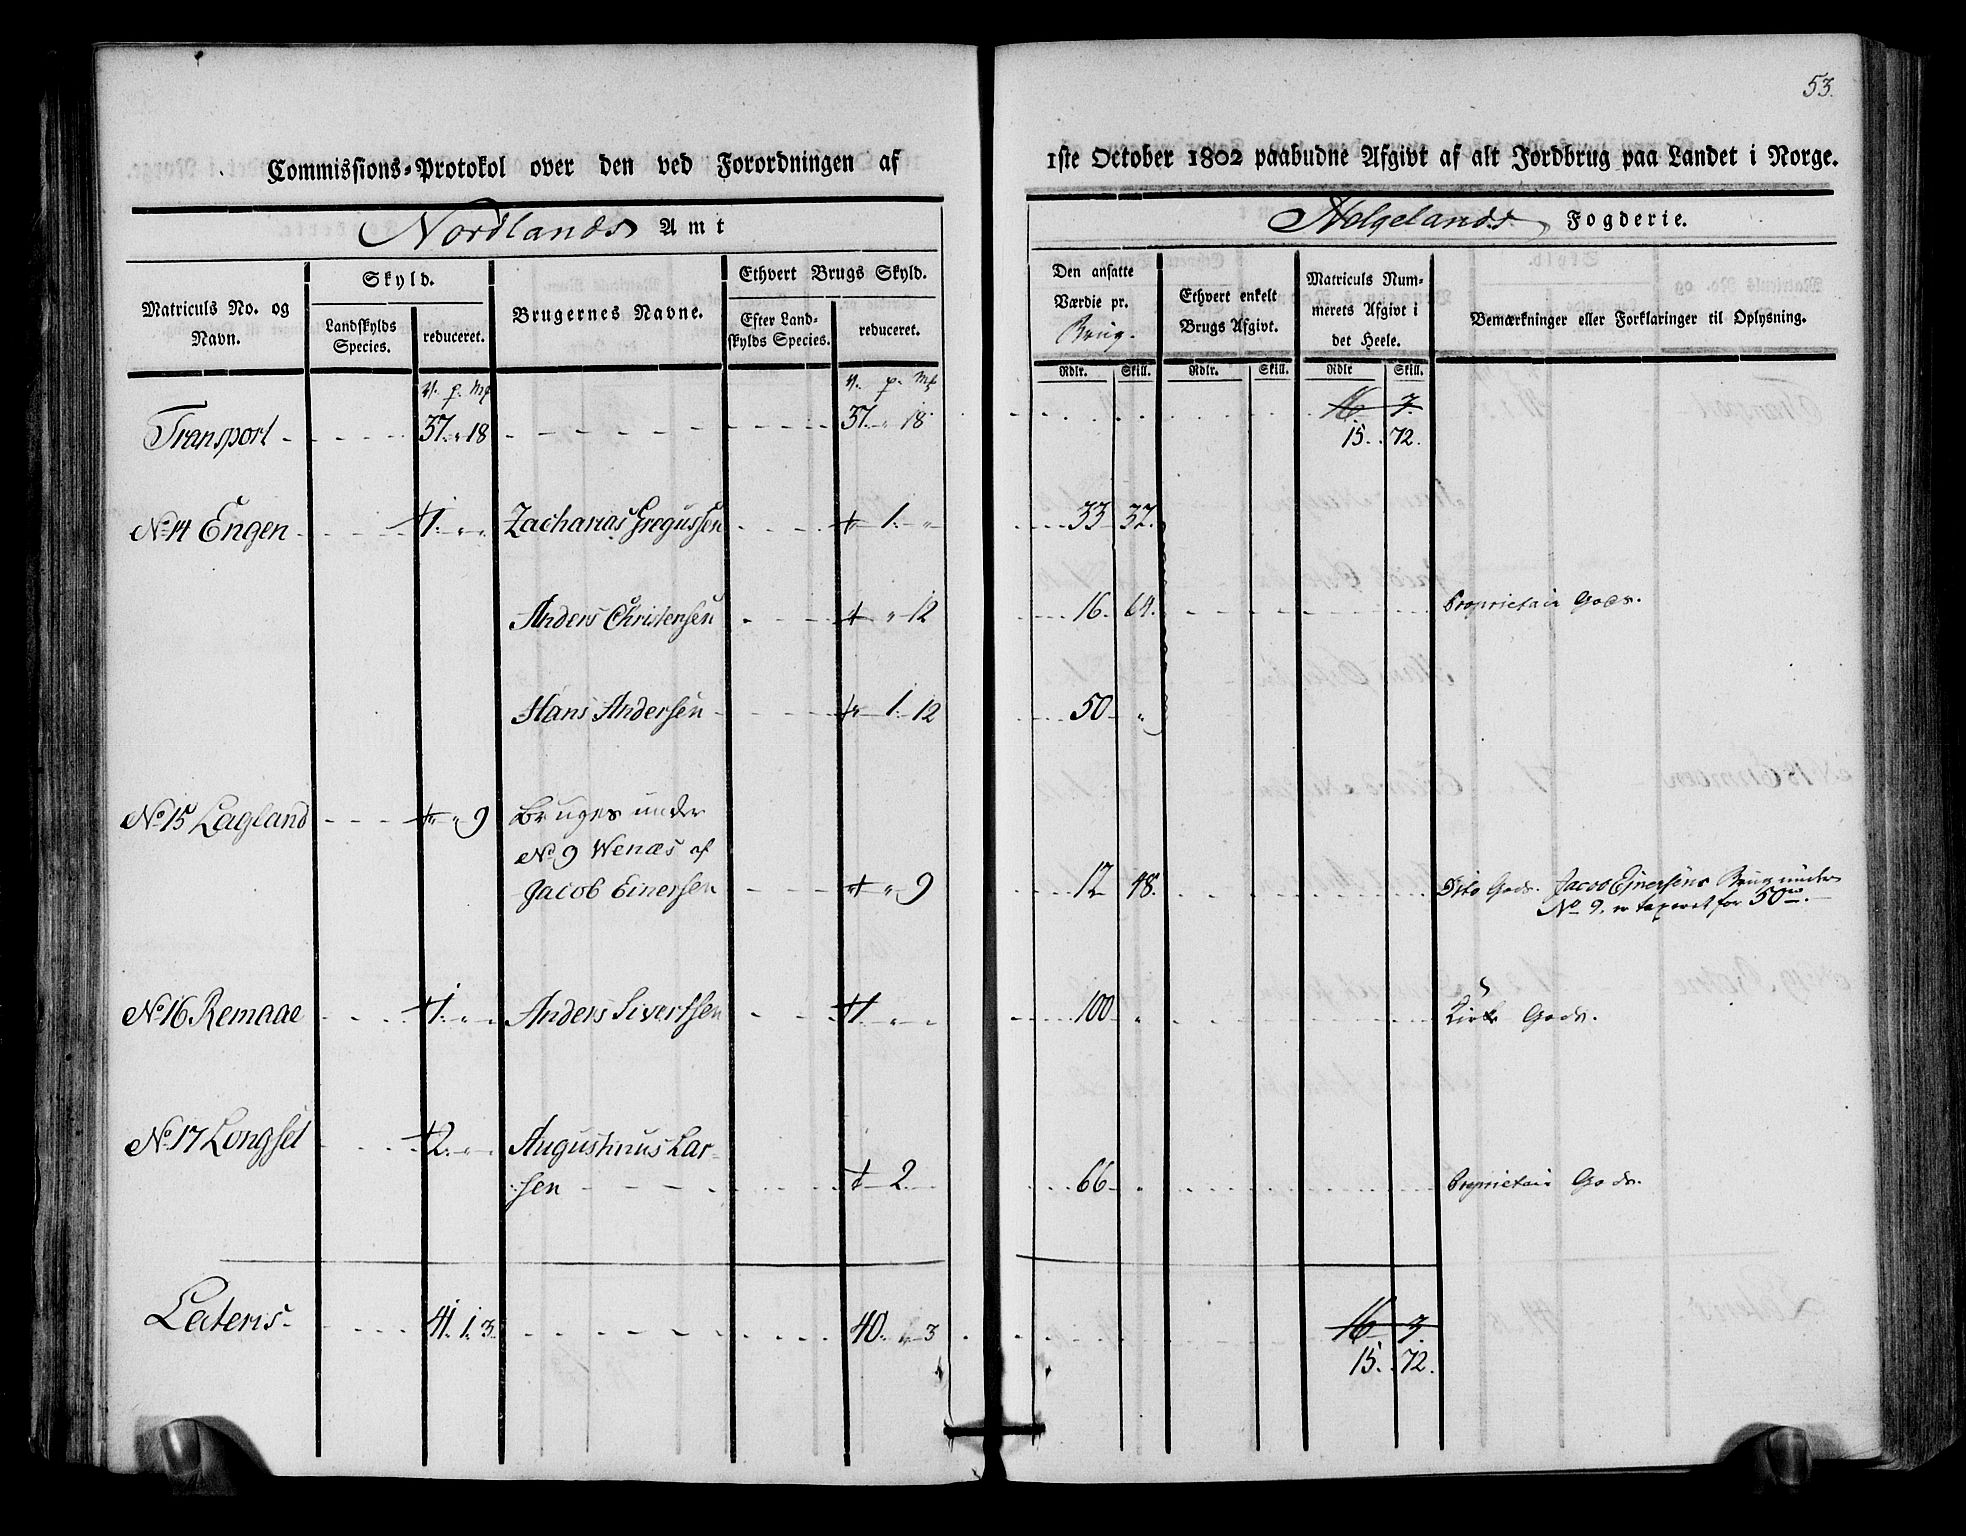 53.
Commissions-Protokol over den ved Forordningen af
1ste October 1802 paabudne Afgivt af alt Jordbrug paa Landet i Norge.
Nordlands Amt
Helgelands Fogderie.
Matriculs No. og Navn.
Skyld.
Landskylds Species.
reduceret.
Brugernes Navne.
Ethvert Brugs Skyld.
Efter Landskylds Species.
reduceret.
Den ansatte Værdie pr. Brug.
Ethvert enkelt Brugs Afgivt.
Matriculs Nummerets Afgivt i det Heele.
Bemærkninger eller Forklaringer til Oplysning.
Rdlr. Skill. Rdlr. Skill. Rdlr Skill.
V. p. Mk V. p. Mk
Transport 37. " 18 37. " 18 16 7.
15. 72.
No. 14 Engen 1. " " Zacharias Gregussen 1. " 33 32.
Anders Christensen " 12 16. 64. Proprietair Gods.
Hans Andersen 1. 12 50 "
No. 15 Lagland " 9 Bruges under
No. 9 Wenæs af
Jacob Einersen " 9 12 48. Dito Gods. Jacob Einersens Brug under
No 9. er taxeret for 50
No. 16 Remaae 1. " " Anders Sivertsen 1 " " 100 " Kirke Gods.
No. 17 Longset 2. " " Augustinus Lar-
sen 2. 66 " Proprietair Gods.
Lateris 41. 1. 3. 40. 3 16 7.
15. 72.